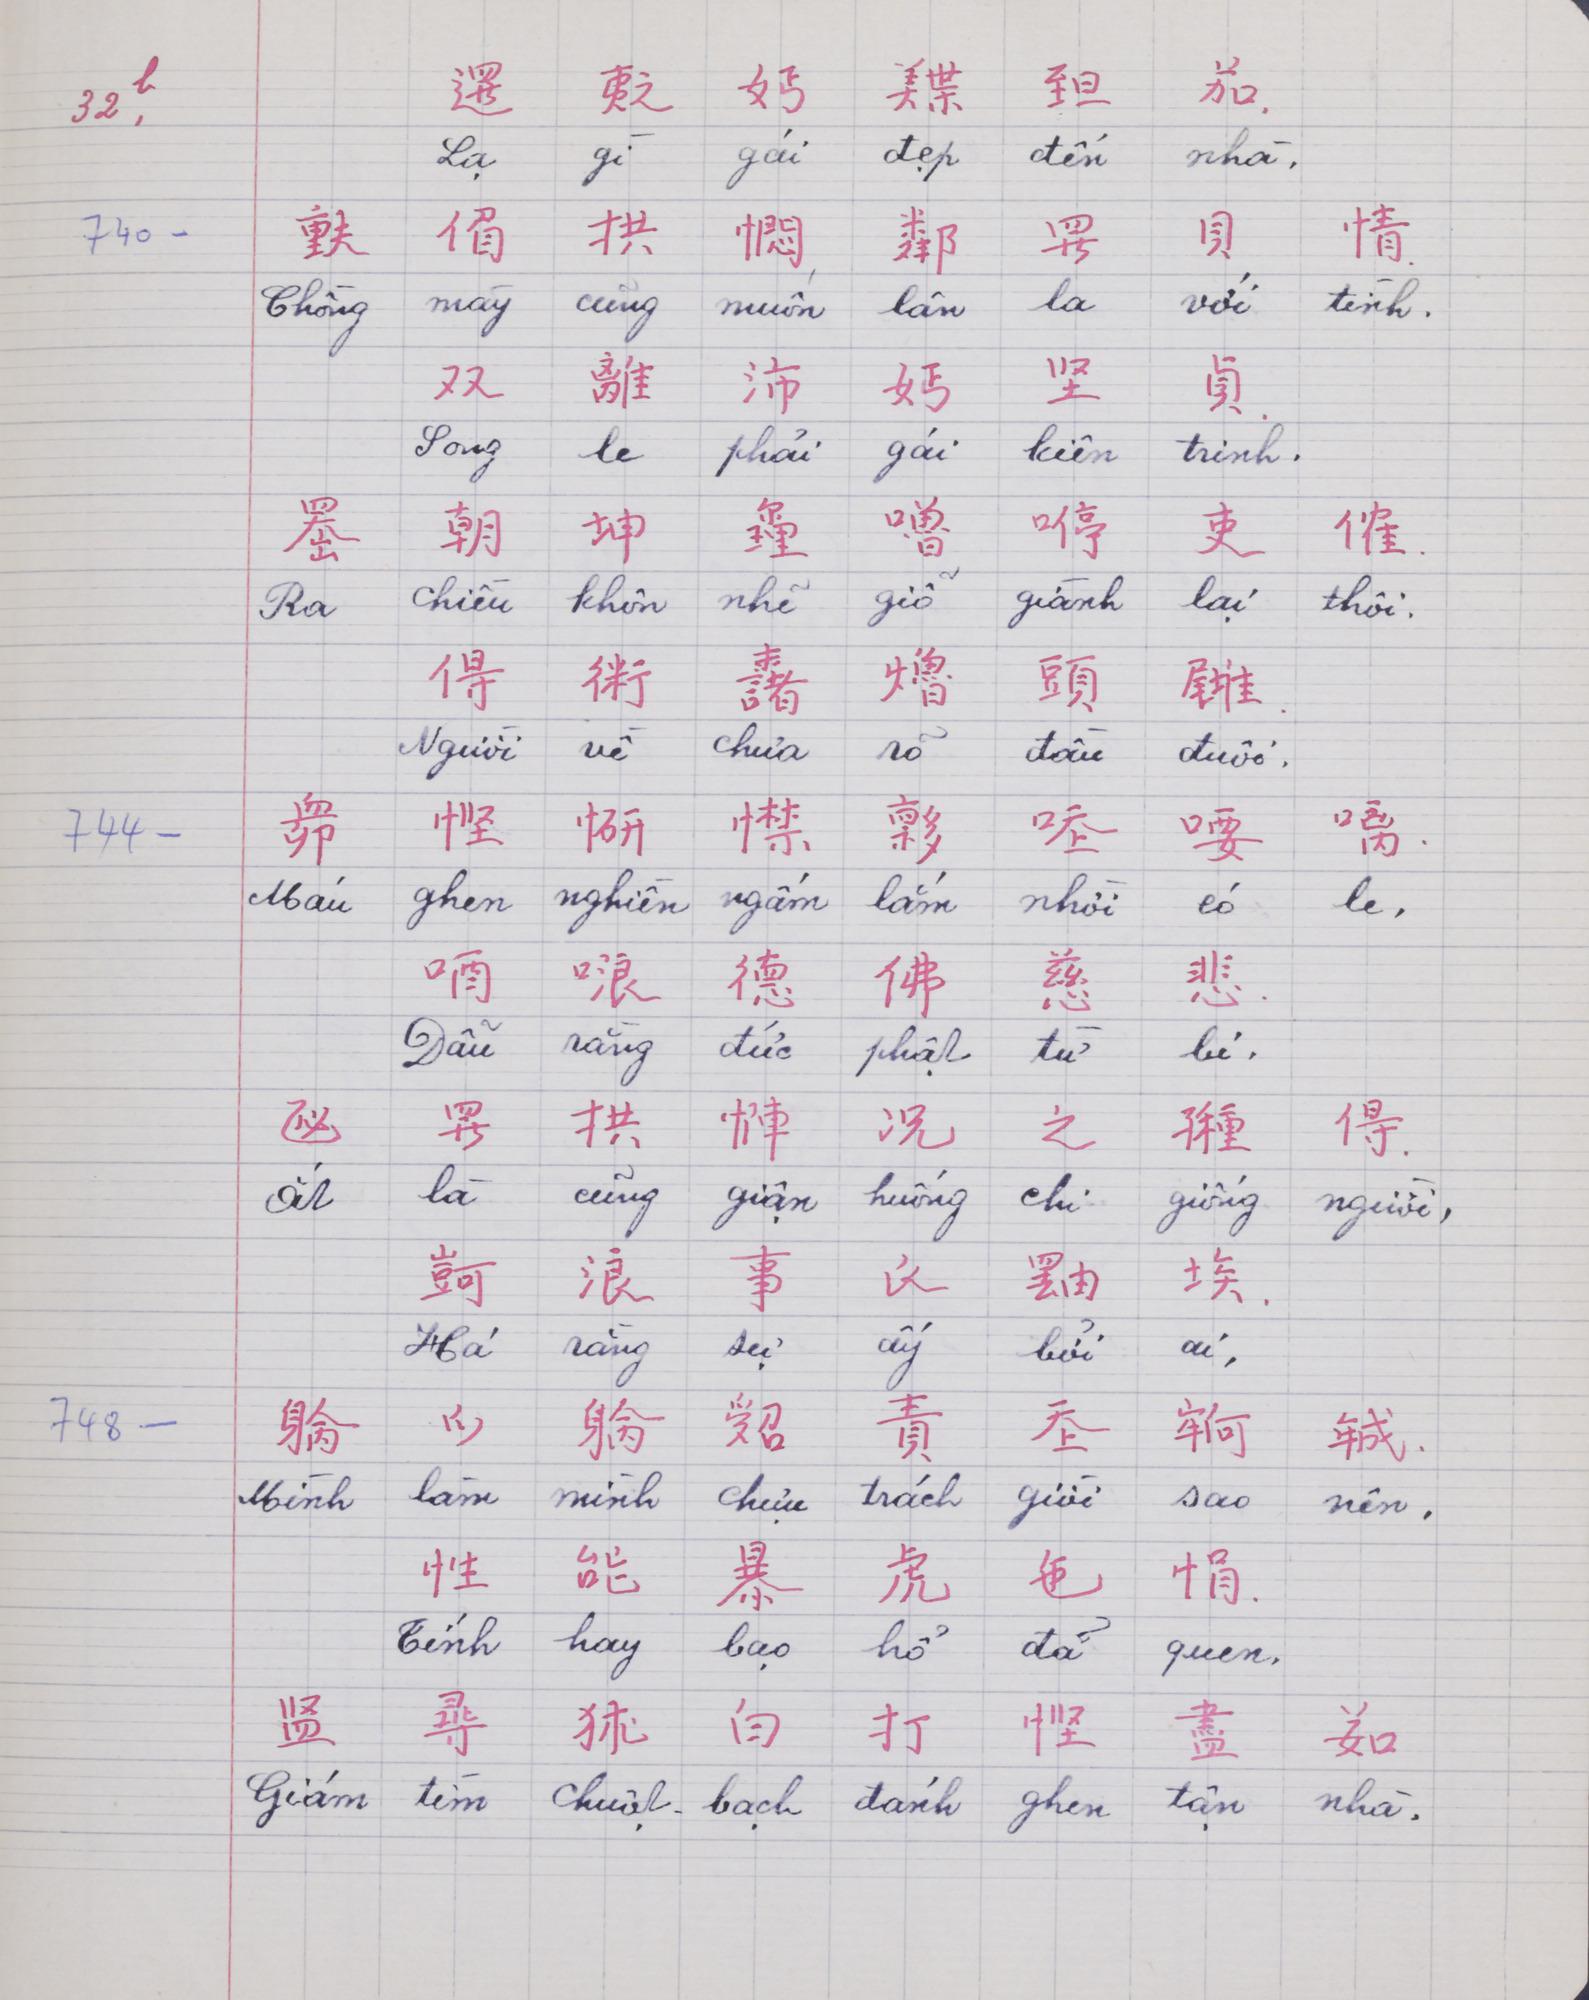 32b,
還 𡗉 𡛔 𦎡 𦤾 茄.
Lạ gì gái đẹp đến nhà.
740 -
𫯳 𠋥 拱 㦖 鄰 𱺵 貝 情.
Chồng mày cũng muốn lân la với tình.
双 離 沛 𡛔 坚 貞.
Song le phải gái kiên trinh.
𦋦 朝 坤 𨤔 噜 哼 吏 傕.
Ra chiều khôn nhẽ giỗ giành lại thôi.
得 術 𪧘 熷 頭 𡳪.
Người về chưa rõ đầu đuôi.
744 -
卯 悭 𢙬 㦗 𡗋 𠰚 喓 𠼲.
Máu ghen nghiền ngấm lắm nhời eó le,
唒 哴 德 佛 慈 悲.
Dẫu rằng đức phật từ bi.
𠮿 𱺵 拱 惲 况 之 種 得.
Ất là cũng giận huống chi giống người,
𡾵 浪 事 𧘇 𤳸 埃.
Há rằng sự ấy bởi ai,
748 -
𨉟 𪜀 𨉟 𠹾 責 𡗶 𡨧 𢧚.
Mình làm mình chịu trách giời sao nên.
性 能 暴 虎 㐌 悁.
Tính hay bạo hổ đả quen.
監 尋 𤝞 白 打 悭 盡 茹
Giám tìm chuột bạch đánh ghen tận nhà.